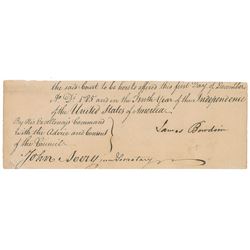 the said Court to be hereto affixed this first Day of December
1785 and in the Tenth Year of the Independence
of the United States of America.
By His Excellency's Command
with the Advice and Consent
of the Council
James Bowdoin
John Avery junr Secretary